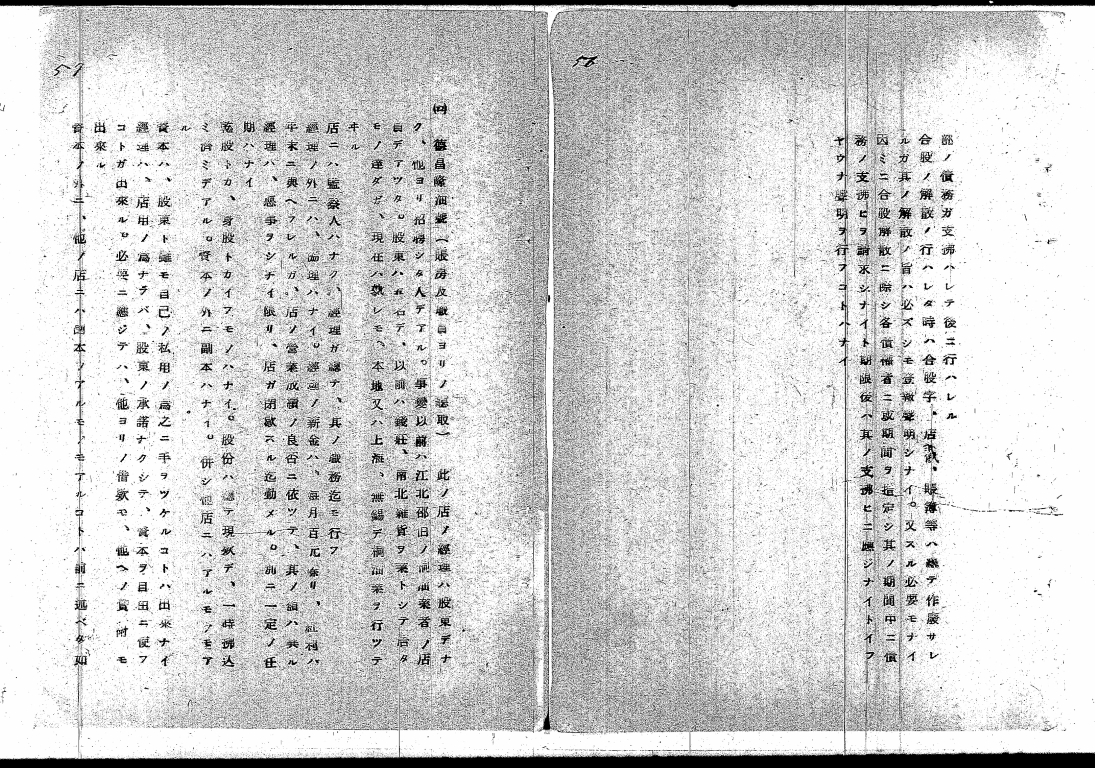 58
部ノ債務ガ支拂ハレテ後ニ行ハレル
合股ノ解散ノ行ハレタ時ハ合股字、店戳、賬簿等ハ總テ作廢サレ
ルガ其ノ解散ノ旨ハ必ズシモ登報聲明シナイ。又スル必要モナイ
因ミニ合股解散ニ際シ各債權者ニ或期間ヲ指定シ其ノ期間中ニ債
務ノ支拂ヒヲ請求シナイト期限後ハ其ノ支拂ヒニ應ジナイトイフ
ヤウナ聲明ヲ行フコトハナイ
59
㈣ 德昌隆油號(賬房及職員ヨリノ聽取) 此ノ店ノ經理ハ股東デナ
ク、他ヨリ招聘シタ人デアル。事變以前ハ江北部旧ノ油業者ノ店
員デアツタ。股東ハ五名デ、以前ハ錢莊、南北雜貨ヲ業トシテ居タ
モノ達ダガ、現在ハ孰レモ、本地又ハ上海、無錫デ油業ヲ行ツテ
ヰル
店ニハ監察人ハナク、經理ガ總テ、其ノ職務迄モ行フ
經理ノ外ニハ、副理ハナイ。經理ノ薪金ハ、每月百元余リ、紅利ハ
年末ニ與ヘラレルガ、店ノ營業成績ノ良否ニ依ツテ、其ノ額ハ異ル
經理ハ、惡事ヲシナイ限リ、店ガ閉歇スル迄勤メル。別ニ一定ノ任
期ハナイ
乾股トカ、身股トカイフモノハナイ。股份ハ總テ現款デ、一時拂込
ミ濟ミデアル。資本ノ外ニ副本ハナイ。併シ他店ニハアルモノモア
ル
資本ハ、股東ト雖モ自己ノ私用ノ爲之ニ手ヲツケルコトハ出來ナイ
經理ハ、店用ノ爲ナラバ、股東ノ承諾ナクシテ、資本ヲ自由ニ使フ
コトガ出來ル。必要ニ應ジテハ、他ヨリノ借款モ、他ヘノ貸附モ
出來ル
資本ノ外ニ、他ノ店ニハ副本ノアルモノモアルコトハ前ニ述ベタ如